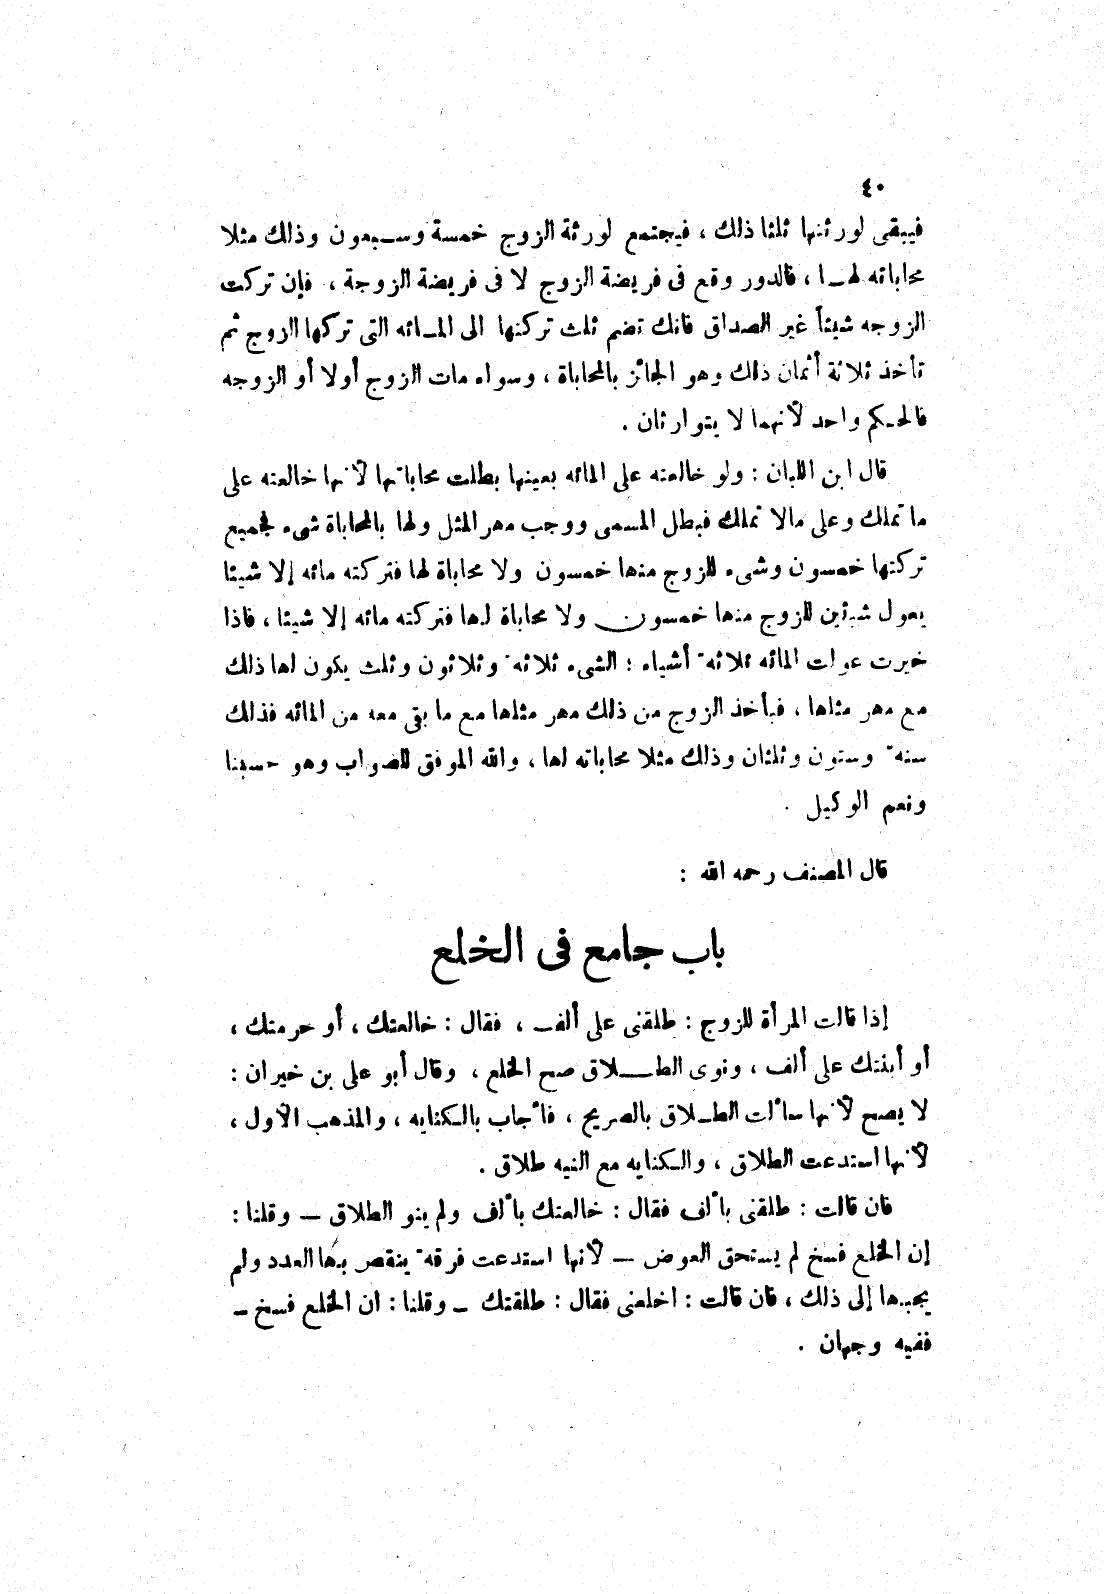 ٤٠
فيبقى لورثتها ثلثا ذلك ، فيجتمع لورثة الزوج خمسة وسبعون وذلك مثلا
محاباته لها ، فالدور وقع فى فريضة الزوج لا فى فريضة الزوجة ، فإن تركت
الزوجه شيئاً غير الصداق فانك تضم ثلث تركتها الى المائه التى تركها الزوج ثم
تأخذ ثلاثة أثمان ذلك وهو الجائز بالمحاباة ، وسواء مات الزوج أولا أو الزوجه
فالحكم واحد لأنهما لا يتوارثان .
قال ابن اللبان : ولو خالعته على المائه بعينها بطلت محاباتها لأنها خالعته على
ما تملك وعلى مالا تملك فبطل المسمى ووجب مهر المثل ولها بالمحاباة شىء لجميع
تركتها خمسون وشىء للزوج منها خمسون ولا محاباة لها فتركته مائه إلا شيئا
يعول شيأين للزوج منها خمسون ولا محاباة لها فتركته مائه إلا شيئا ، فاذا
جبرت عولت المائه ثلاثه أشياء : الشىء ثلاثه وثلاثون وثلث يكون لها ذلك
مع مهر مثلها ، فيأخذ الزوج من ذلك مهر مثلها مع ما بقى معه من المائه فذلك
سته وستون وثلثان وذلك مثلا محاباته لها ، والله الموفق للصواب وهو حسبنا
ونعم الوكيل .
قال المصنف رحمه الله :
باب جامع فى الخلع
إذا قالت المرأة للزوج : طلقنى على ألف ، فقال : خالعتك ، أو حرمتك ،
أو أبنتك على ألف ، ونوى الطلاق صح الخلع ، وقال أبو على بن خيران :
لا يصح لأنها سألت الطلاق بالصريح ، فأجاب بالكنايه ، والمذهب الأول ،
لأنها استدعت الطلاق ، والكنايه مع النيه طلاق .
فان قالت : طلقنى بألف فقال : خالعتك بألف ولم ينو الطلاق – وقلنا :
إن الخلع فسخ لم يستحق العوض – لأنها استدعت فرقه ينقص بها العدد ولم
يجبها إلى ذلك ، فان قالت : اخلعنى فقال : طلقتك – وقلنا : ان الخلع فسخ –
ففيه وجهان .